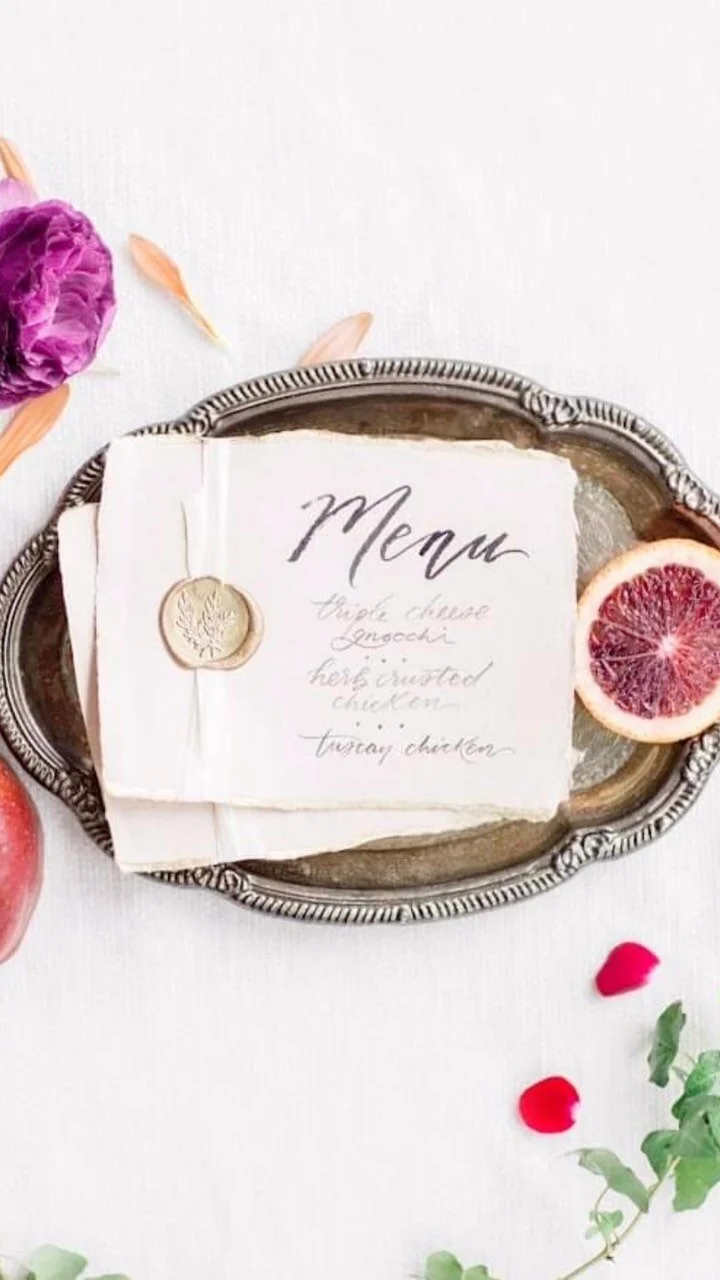 Menu
triple cheese
gnocchi
herb crusted
chicken
tuscay chicken